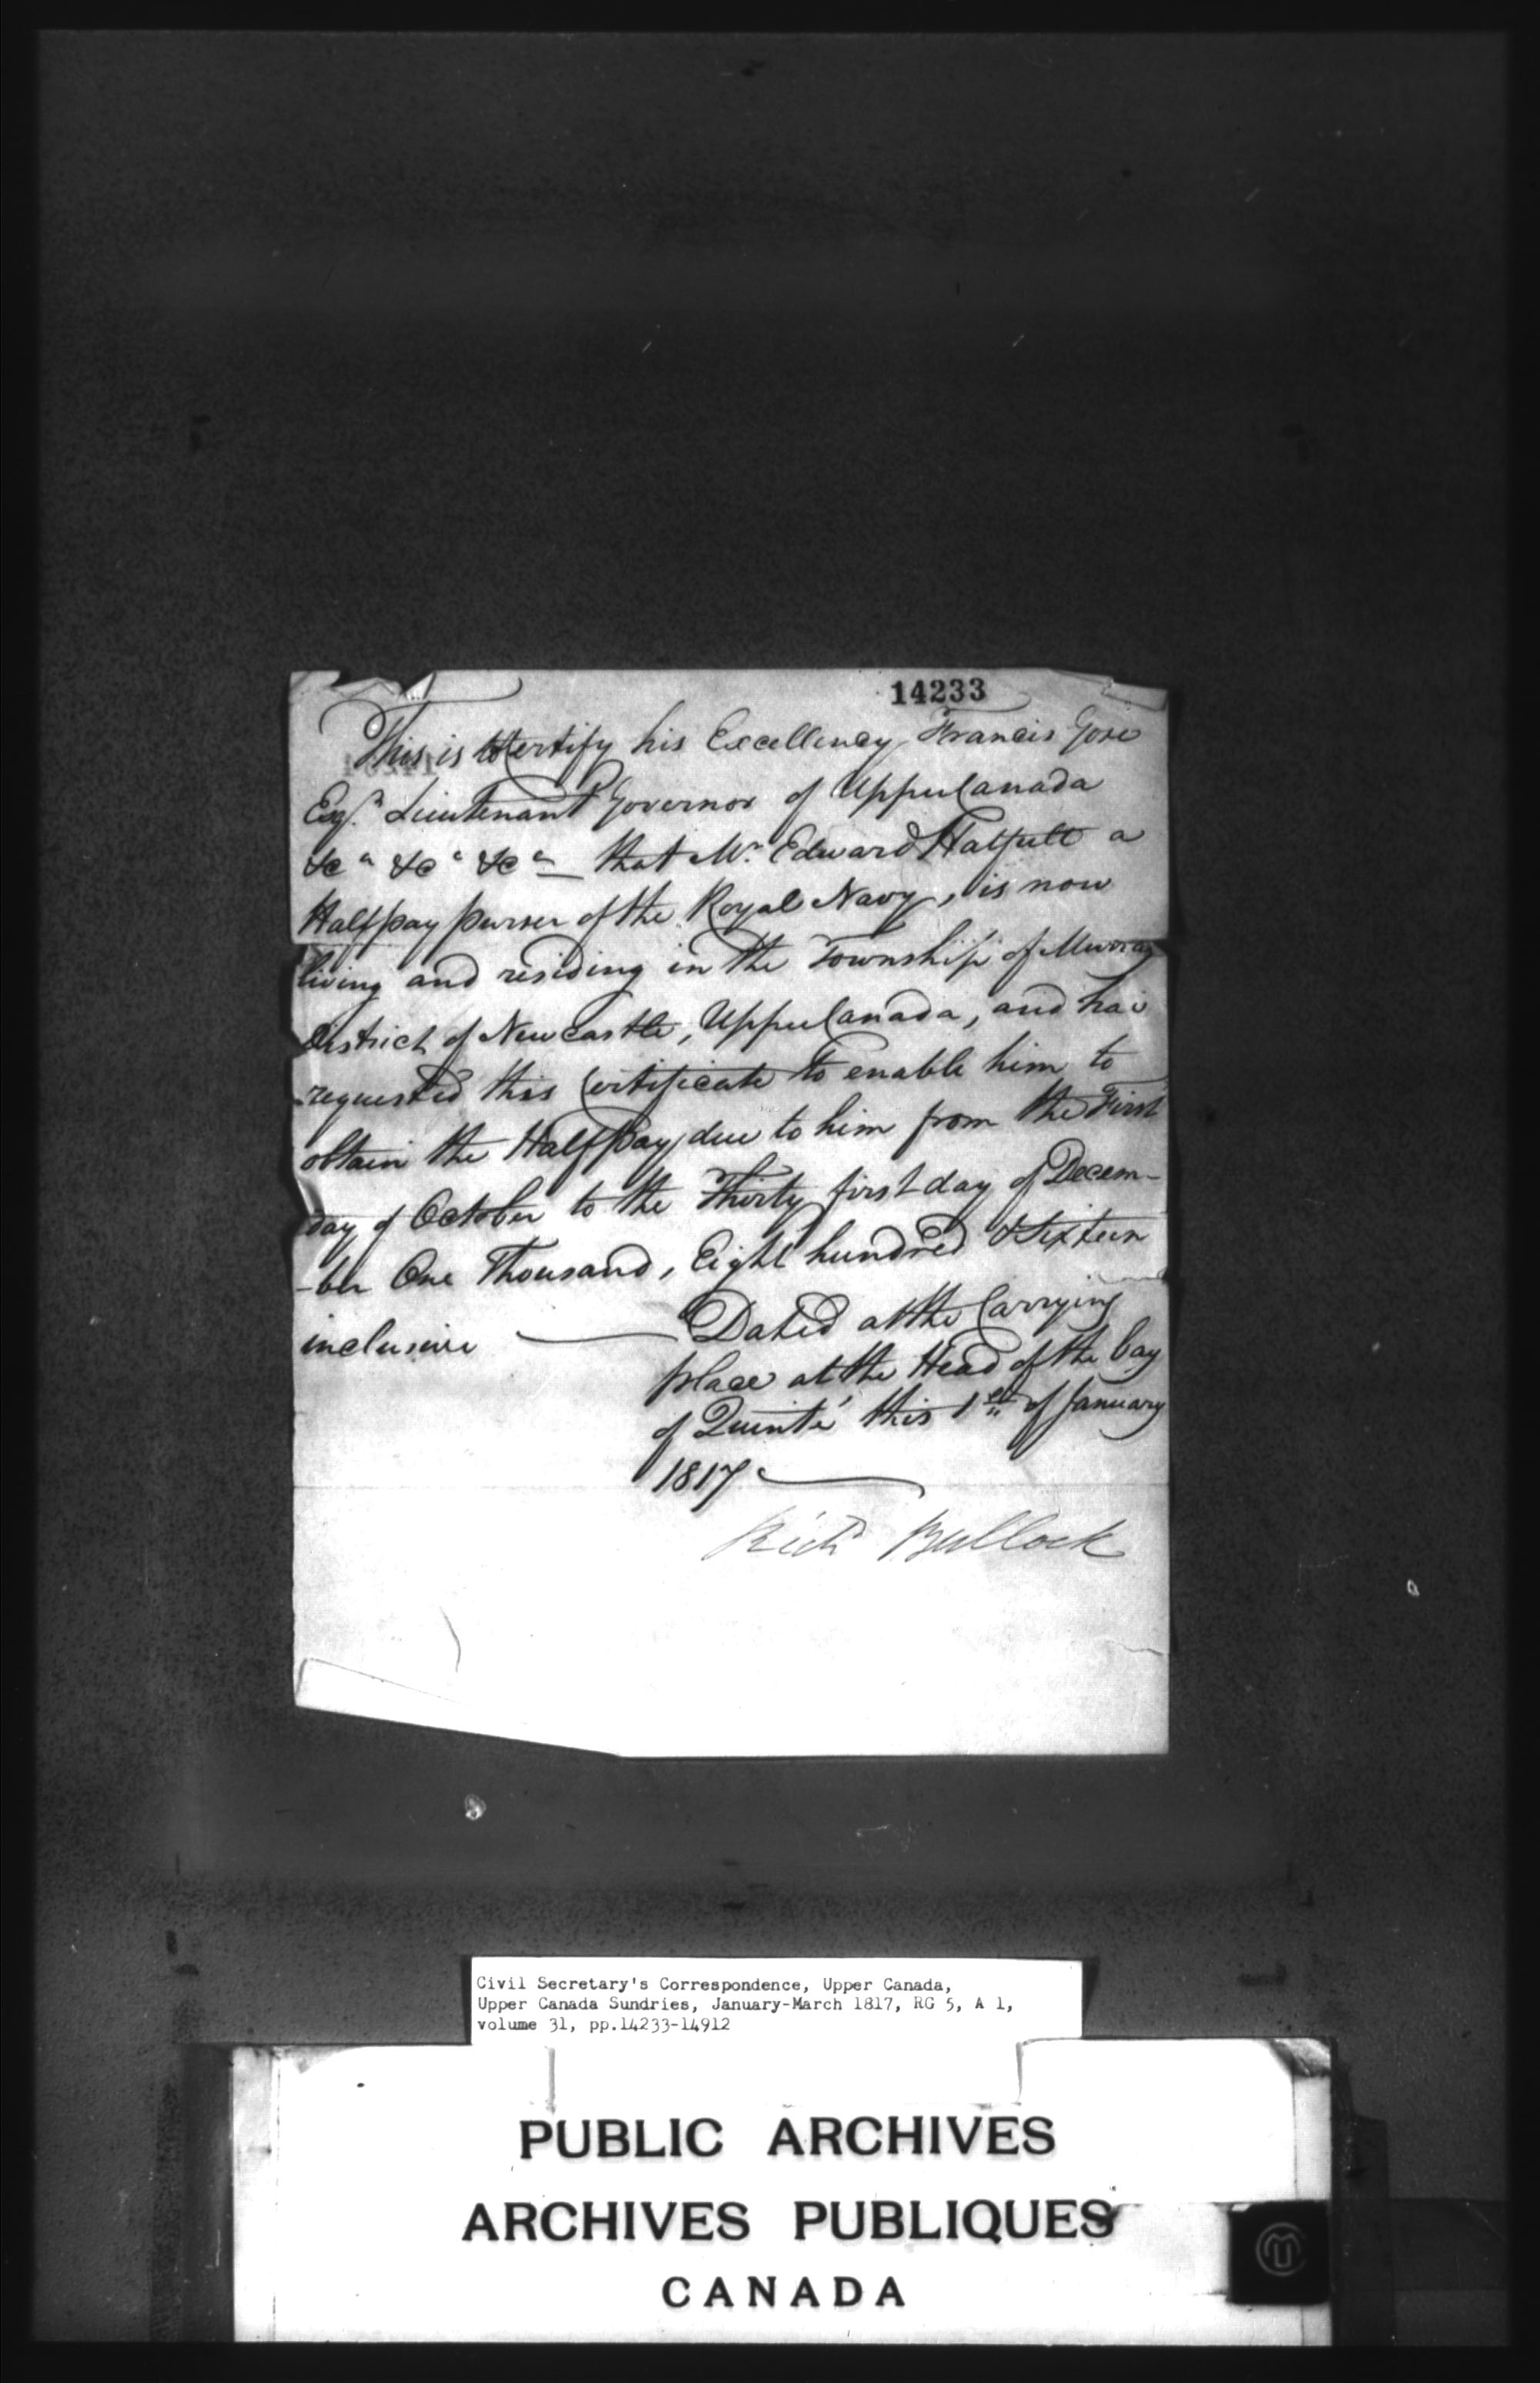 14233
This is to Certify his Excellency Francis Gore
Esqr. Lieutenant Governor of Upper Canada
&ca &ca &ca — that Mr. Edward a
Halfpay purser of the Royal Navy, is now
living and residing in the Township of Murray
District of Newcastle, Upper Canada, and has
requested this Certificate to enable him to
obtain the Halfpay due to him from the First
day of October to the Thirty first day of Decem-
-ber One Thousand, Eight hundred & Sixteen
inclusive — Dated at the Carrying
place at the Head of the bay
of Quinté this 1st of January
1817 —
Richd Bullock
Civil Secretary's Correspondence, Upper Canada,
Upper Canada Sundries, January-March 1817, RG 5, A 1,
volume 31, pp.14233-14912
PUBLIC ARCHIVES
ARCHIVES PUBLIQUES
CANADA